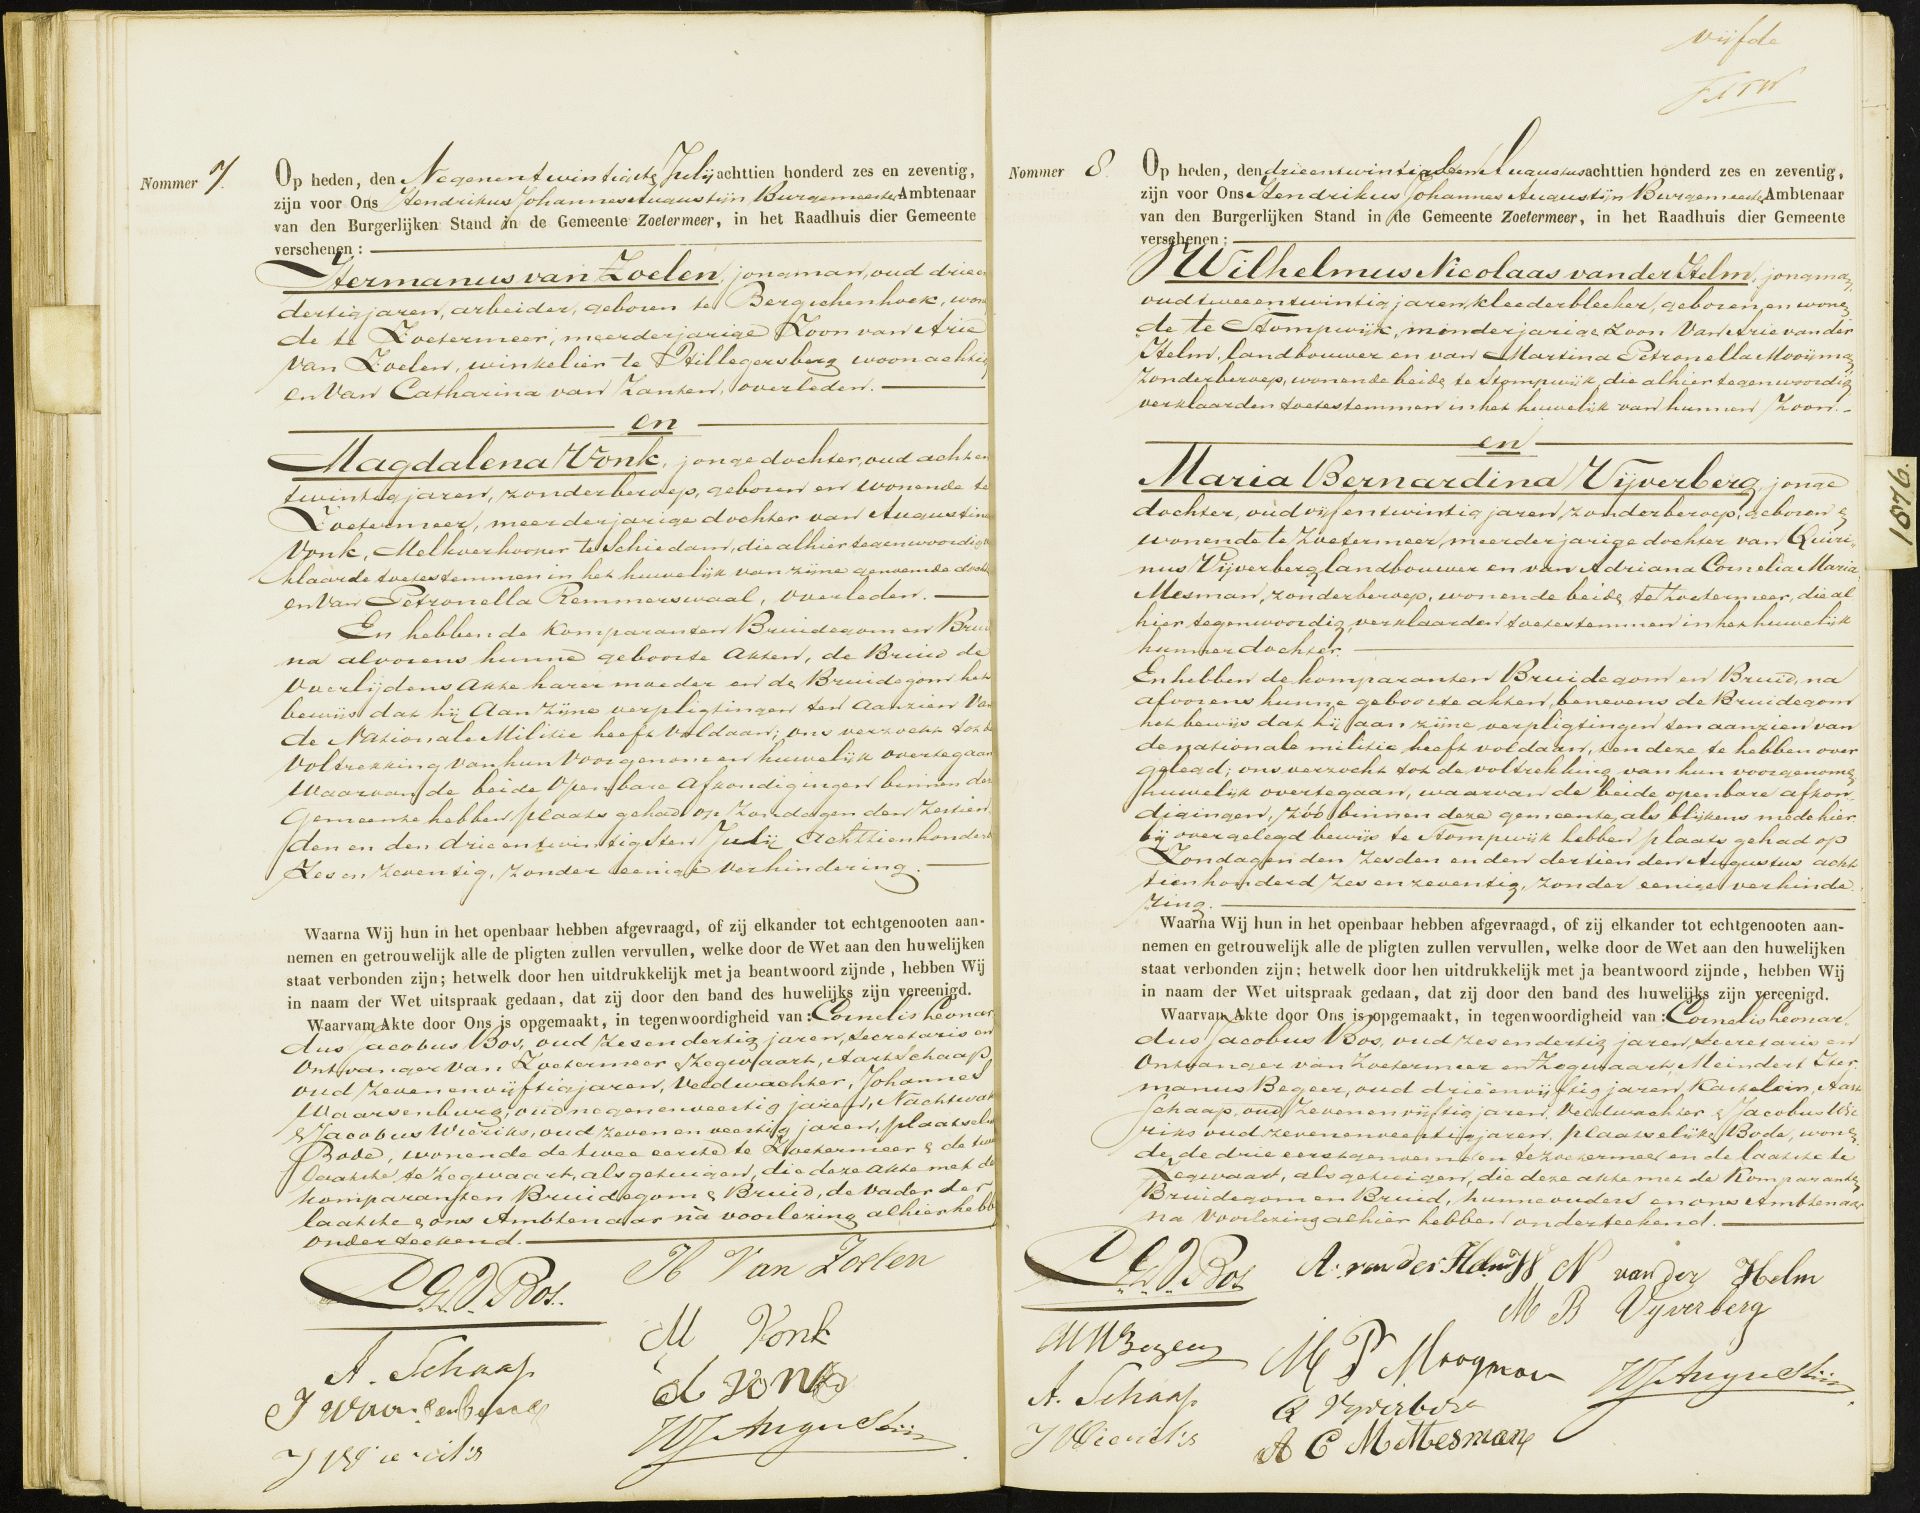 Nommer 7.
Op heden, den Negenentwintigste Julij achttien honderd zes en zeventig,
zijn voor Ons Hendrikus Johannes Augustijn Burgemeester Ambtenaar
van den Burgerlijken Stand in de Gemeente Zoetermeer, in het Raadhuis dier Gemeente
verschenen:
Hermanus van Zoelen, jongman, oud drieen
dertig jaren, arbeider, geboren te Bergschenhoek, wonen
de te Zoetermeer, meerderjarige Zoon van Arie
van Zoelen, winkelier te Hillegersberg woonachtig
en van Catharina van Zanten, overleden.
en
Magdalena Vonk, jonge dochter, oud acht en
twintig jaren, zonder beroep, geboren en wonende te
Zoetermeer, meerderjarige dochter van Augustinus
Vonk, Melkverkooper te Schiedam, die alhier tegenwoordig
klaarde toetestemmen in het huwelijk van zijne genoemde doch
en van Petronella Remmerswaal, overleden.
En hebben de Komparanten Bruidegom en Bruid
na alvorens hunne geboorte akten, de Bruid de
Overlijdens akte harer moeder en de Bruidegom het
bewijs dat hij aan zijne verpligtingen ten aanzien van
de Nationale Militie heeft voldaan; ons verzocht tot de
Voltrekking van hun voorgenomen huwelijk overtegaan
Waarvan de beide Openbare Afkondigingen binnen deze
Gemeente hebben plaats gehad op Zondagen den zestien
den en den drieentwintigsten Julij achttienhonderd
Zes en zeventig, zonder eenige verhindering.
Waarna Wij hun in het openbaar hebben afgevraagd, of zij elkander tot echtgenooten aan-
nemen en getrouwelijk alle de pligten zullen vervullen, welke door de Wet aan den huwelijken
staat verbonden zijn; hetwelk door hen uitdrukkelijk met ja beantwoord zijnde, hebben Wij
in naam der Wet uitspraak gedaan, dat zij door den band des huwelijks zijn vereenigd.
Waarvan Akte door Ons is opgemaakt, in tegenwoordigheid van: Cornelis Leonar
dus Jacobus Bos, oud zesendertig jaren, secretaris en
Ontvanger van Zoetermeer & Zegwaart, Aart Schaap
oud zevenenvijftig jaren, Veldwachter, Johannes
Waarsenburg, oud negenenveertig jaren, Nachtwak
& Jacobus Wieriks, oud zevenenveertig jaren, plaatselijk
Bode, wonende de twee eerste te Zoetermeer & de twee
laatste te Zegwaart, als getuigen, die deze akte met de
komparanten Bruidegom & Bruid, de vader der
laatste & ons Ambtenaar na voorlezing alhier hebb
onderteekend.
C L J Bos.
H Van Zoelen
M Vonk
A. Schaap
A Vonk
J Waarsenburg
HJ Augustijn
J Wieriks
vijfde
Nommer 8.
Op heden, den drieentwintigsten Augustus achttien honderd zes en zeventig,
zijn voor Ons Hendrikus Johannes Augustijn Burgemeester Ambtenaar
van den Burgerlijken Stand in de Gemeente Zoetermeer, in het Raadhuis dier Gemeente
verschenen:
Wilhelmus Nicolaas van der Helm, jongman,
oud tweeentwintig jaren, kleederbleeker, geboren en wonen
de te Stompwijk, minderjarige zoon van Arie van der
Helm, landbouwer en van Martina Petronella Mooijman
zonder beroep, wonende beide te Stompwijk, die alhier tegenwoordig
verklaarden toetestemmen in het huwelijk van hunnen Zoon.
en
Maria Bernardina Vijverberg, jonge
dochter, oud vijfentwintig jaren, zonder beroep, geboren &
wonende te Zoetermeer, meerderjarige dochter van Quiri-
nus Vijverberg landbouwer en van Adriana Cornelia Maria
Mesman, zonder beroep, wonende beide te Zoetermeer, die al
hier tegenwoordig, verklaarden toetestemmen in het huwelijk
hunner dochter.
En hebben de komparanten Bruidegom en Bruid, na
alvorens hunne geboorte akten, benevens de Bruidegom
het bewijs dat hij aan zijne verpligtingen ten aanzien van
de nationale militie heeft voldaan, ten deze te hebben over
gelegd; ons verzocht tot de voltrekking van hun voorgenomen
huwelijk overtegaan, waarvan de beide openbare afkon-
digingen, zóó binnen deze gemeente, als blijkens mede hier
bij overgelegd bewijs te Stompwijk hebben plaats gehad op
Zondagen den zesden en den dertienden Augustus acht
tienhonderd zes en zeventig, zonder eenige verhinde-
ring.
Waarna Wij hun in het openbaar hebben afgevraagd, of zij elkander tot echtgenooten aan-
nemen en getrouwelijk alle de pligten zullen vervullen, welke door de Wet aan den huwelijken
staat verbonden zijn; hetwelk door hen uitdrukkelijk met ja beantwoord zijnde, hebben Wij
in naam der Wet uitspraak gedaan, dat zij door den band des huwelijks zijn vereenigd.
Waarvan Akte door Ons is opgemaakt, in tegenwoordigheid van: Cornelis Leonar-
dus Jacobus Bos, oud zesendertig jaren, secretaris en
Ontvanger van Zoetermeer en Zegwaart, Meindert Her
manus Begeer, oud drieenvijftig jaren, Kastelein, Aart
Schaap, oud zevenenvijftig jaren, Veldwachter & Jacobus Wie
riks oud zevenenveertig jaren, plaatselijke Bode, wonen
de de drie eerstgenoemden te Zoetermeer en de laatste te
Zegwaart, als getuigen, die deze akte met de Komparanten
Bruidegom en Bruid, hunne ouders en ons Ambtenaar
na voorlezing alhier hebben onderteekend.
C L J Bos
A. van der Helm
W N van der Helm
M B Vijverberg
M H Begeer
M P Mooyman
HJ Augustijn
A. Schaap
Q Vyverberg
J Wieriks
A C M Mesman
1876.